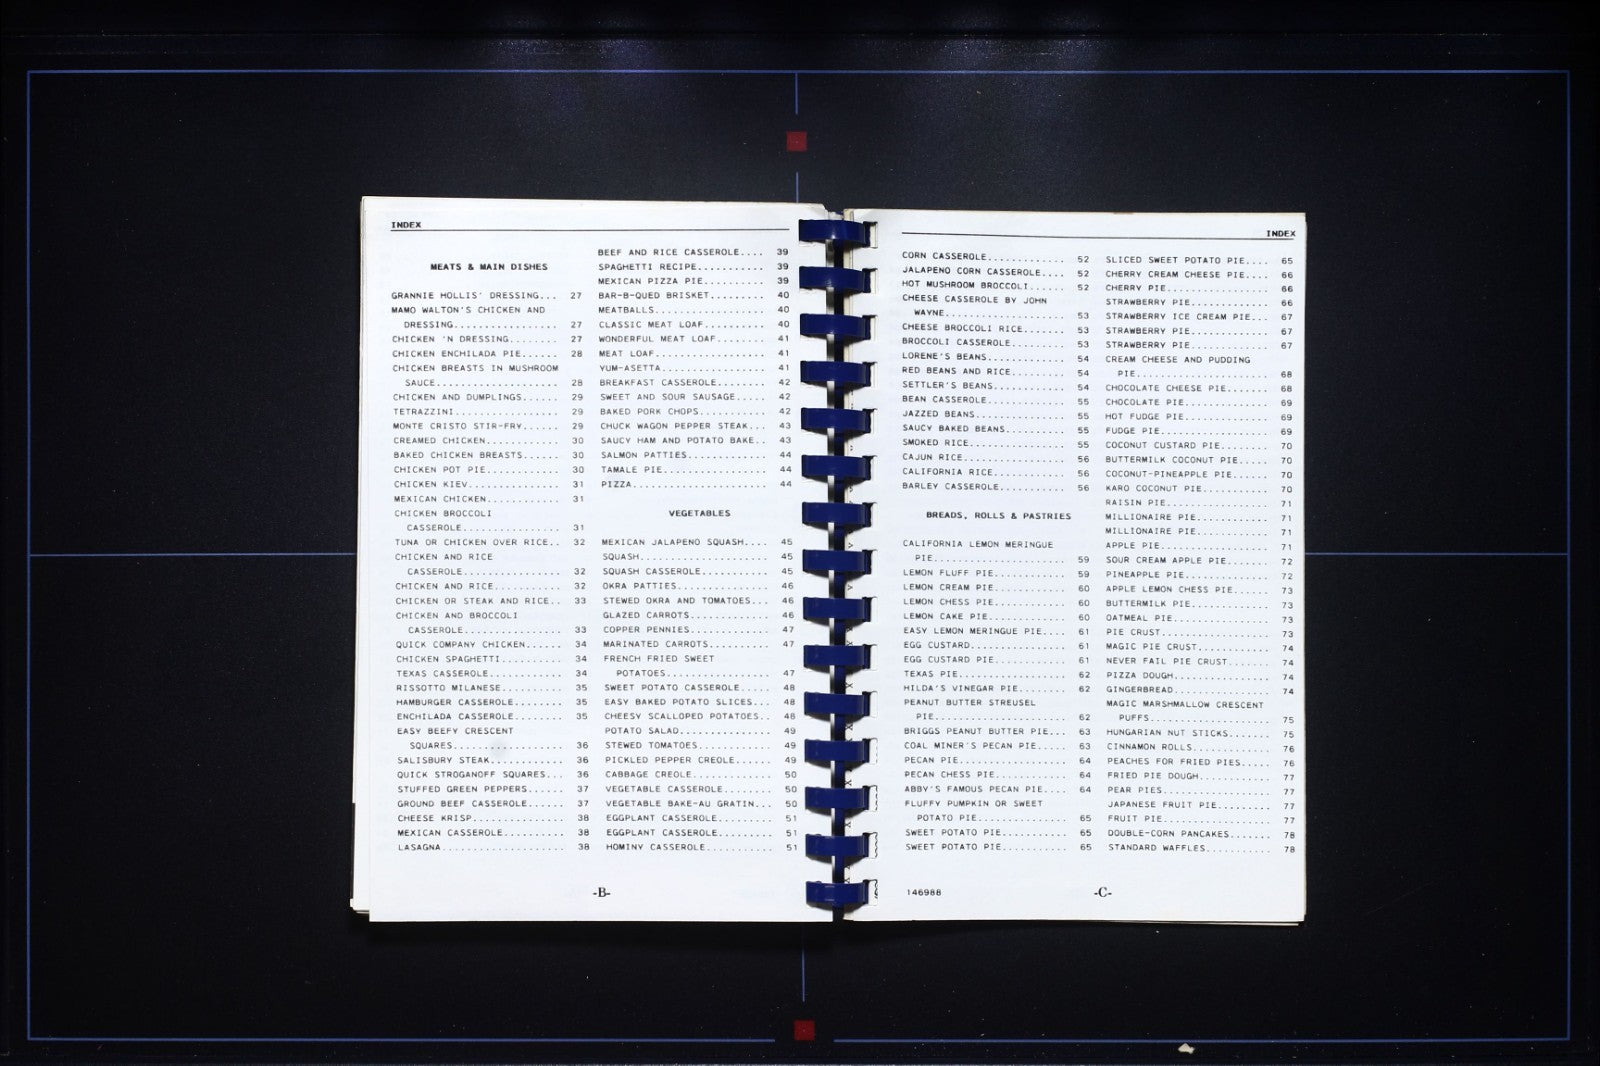 INDEX
MEATS & MAIN DISHES
GRANNIE HOLLIS' DRESSING... 27
MAMO WALTON'S CHICKEN AND
DRESSING................. 27
CHICKEN 'N DRESSING........ 27
CHICKEN ENCHILADA PIE...... 28
CHICKEN BREASTS IN MUSHROOM
SAUCE.................... 28
CHICKEN AND DUMPLINGS...... 29
TETRAZZINI................. 29
MONTE CRISTO STIR-FRY...... 29
CREAMED CHICKEN............ 30
BAKED CHICKEN BREASTS...... 30
CHICKEN POT PIE............ 30
CHICKEN KIEV............... 31
MEXICAN CHICKEN............ 31
CHICKEN BROCCOLI
CASSEROLE................ 31
TUNA OR CHICKEN OVER RICE.. 32
CHICKEN AND RICE
CASSEROLE................ 32
CHICKEN AND RICE........... 32
CHICKEN OR STEAK AND RICE.. 33
CHICKEN AND BROCCOLI
CASSEROLE................ 33
QUICK COMPANY CHICKEN...... 34
CHICKEN SPAGHETTI.......... 34
TEXAS CASSEROLE............ 34
RISSOTTO MILANESE.......... 35
HAMBURGER CASSEROLE........ 35
ENCHILADA CASSEROLE........ 35
EASY BEEFY CRESCENT
SQUARES.................. 36
SALISBURY STEAK............ 36
QUICK STROGANOFF SQUARES... 36
STUFFED GREEN PEPPERS...... 37
GROUND BEEF CASSEROLE...... 37
CHEESE KRISP............... 38
MEXICAN CASSEROLE.......... 38
LASAGNA.................... 38
BEEF AND RICE CASSEROLE.... 39
SPAGHETTI RECIPE........... 39
MEXICAN PIZZA PIE.......... 39
BAR-B-QUED BRISKET......... 40
MEATBALLS.................. 40
CLASSIC MEAT LOAF.......... 40
WONDERFUL MEAT LOAF........ 41
MEAT LOAF.................. 41
YUM-ASETTA................. 41
BREAKFAST CASSEROLE........ 42
SWEET AND SOUR SAUSAGE..... 42
BAKED PORK CHOPS........... 42
CHUCK WAGON PEPPER STEAK... 43
SAUCY HAM AND POTATO BAKE.. 43
SALMON PATTIES............. 44
TAMALE PIE................. 44
PIZZA...................... 44
VEGETABLES
MEXICAN JALAPENO SQUASH.... 45
SQUASH..................... 45
SQUASH CASSEROLE........... 45
OKRA PATTIES............... 46
STEWED OKRA AND TOMATOES... 46
GLAZED CARROTS............. 46
COPPER PENNIES............. 47
MARINATED CARROTS.......... 47
FRENCH FRIED SWEET
POTATOES................. 47
SWEET POTATO CASSEROLE..... 48
EASY BAKED POTATO SLICES... 48
CHEESY SCALLOPED POTATOES.. 48
POTATO SALAD............... 49
STEWED TOMATOES............ 49
PICKLED PEPPER CREOLE...... 49
CABBAGE CREOLE............. 50
VEGETABLE CASSEROLE........ 50
VEGETABLE BAKE-AU GRATIN... 50
EGGPLANT CASSEROLE......... 51
EGGPLANT CASSEROLE......... 51
HOMINY CASSEROLE........... 51
-B-
INDEX
CORN CASSEROLE............. 52
JALAPENO CORN CASSEROLE.... 52
HOT MUSHROOM BROCCOLI...... 52
CHEESE CASSEROLE BY JOHN
WAYNE.................... 53
CHEESE BROCCOLI RICE....... 53
BROCCOLI CASSEROLE......... 53
LORENE'S BEANS............. 54
RED BEANS AND RICE......... 54
SETTLER'S BEANS............ 54
BEAN CASSEROLE............. 55
JAZZED BEANS............... 55
SAUCY BAKED BEANS.......... 55
SMOKED RICE................ 55
CAJUN RICE................. 56
CALIFORNIA RICE............ 56
BARLEY CASSEROLE........... 56
BREADS, ROLLS & PASTRIES
CALIFORNIA LEMON MERINGUE
PIE...................... 59
LEMON FLUFF PIE............ 59
LEMON CREAM PIE............ 60
LEMON CHESS PIE............ 60
LEMON CAKE PIE............. 60
EASY LEMON MERINGUE PIE.... 61
EGG CUSTARD................ 61
EGG CUSTARD PIE............ 61
TEXAS PIE.................. 62
HILDA'S VINEGAR PIE........ 62
PEANUT BUTTER STREUSEL
PIE...................... 62
BRIGGS PEANUT BUTTER PIE... 63
COAL MINER'S PECAN PIE..... 63
PECAN PIE.................. 64
PECAN CHESS PIE............ 64
ABBY'S FAMOUS PECAN PIE.... 64
FLUFFY PUMPKIN OR SWEET
POTATO PIE............... 65
SWEET POTATO PIE........... 65
SWEET POTATO PIE........... 65
SLICED SWEET POTATO PIE.... 65
CHERRY CREAM CHEESE PIE.... 66
CHERRY PIE................. 66
STRAWBERRY PIE............. 66
STRAWBERRY ICE CREAM PIE... 67
STRAWBERRY PIE............. 67
STRAWBERRY PIE............. 67
CREAM CHEESE AND PUDDING
PIE...................... 68
CHOCOLATE CHEESE PIE....... 68
CHOCOLATE PIE.............. 69
HOT FUDGE PIE.............. 69
FUDGE PIE.................. 69
COCONUT CUSTARD PIE........ 70
BUTTERMILK COCONUT PIE..... 70
COCONUT-PINEAPPLE PIE...... 70
KARO COCONUT PIE........... 70
RAISIN PIE................. 71
MILLIONAIRE PIE............ 71
MILLIONAIRE PIE............ 71
APPLE PIE.................. 71
SOUR CREAM APPLE PIE....... 72
PINEAPPLE PIE.............. 72
APPLE LEMON CHESS PIE...... 73
BUTTERMILK PIE............. 73
OATMEAL PIE................ 73
PIE CRUST.................. 73
MAGIC PIE CRUST............ 74
NEVER FAIL PIE CRUST....... 74
PIZZA DOUGH................ 74
GINGERBREAD................ 74
MAGIC MARSHMALLOW CRESCENT
PUFFS.................... 75
HUNGARIAN NUT STICKS....... 75
CINNAMON ROLLS............. 76
PEACHES FOR FRIED PIES..... 76
FRIED PIE DOUGH............ 77
PEAR PIES.................. 77
JAPANESE FRUIT PIE......... 77
FRUIT PIE.................. 77
DOUBLE-CORN PANCAKES....... 78
STANDARD WAFFLES........... 78
146988
-C-